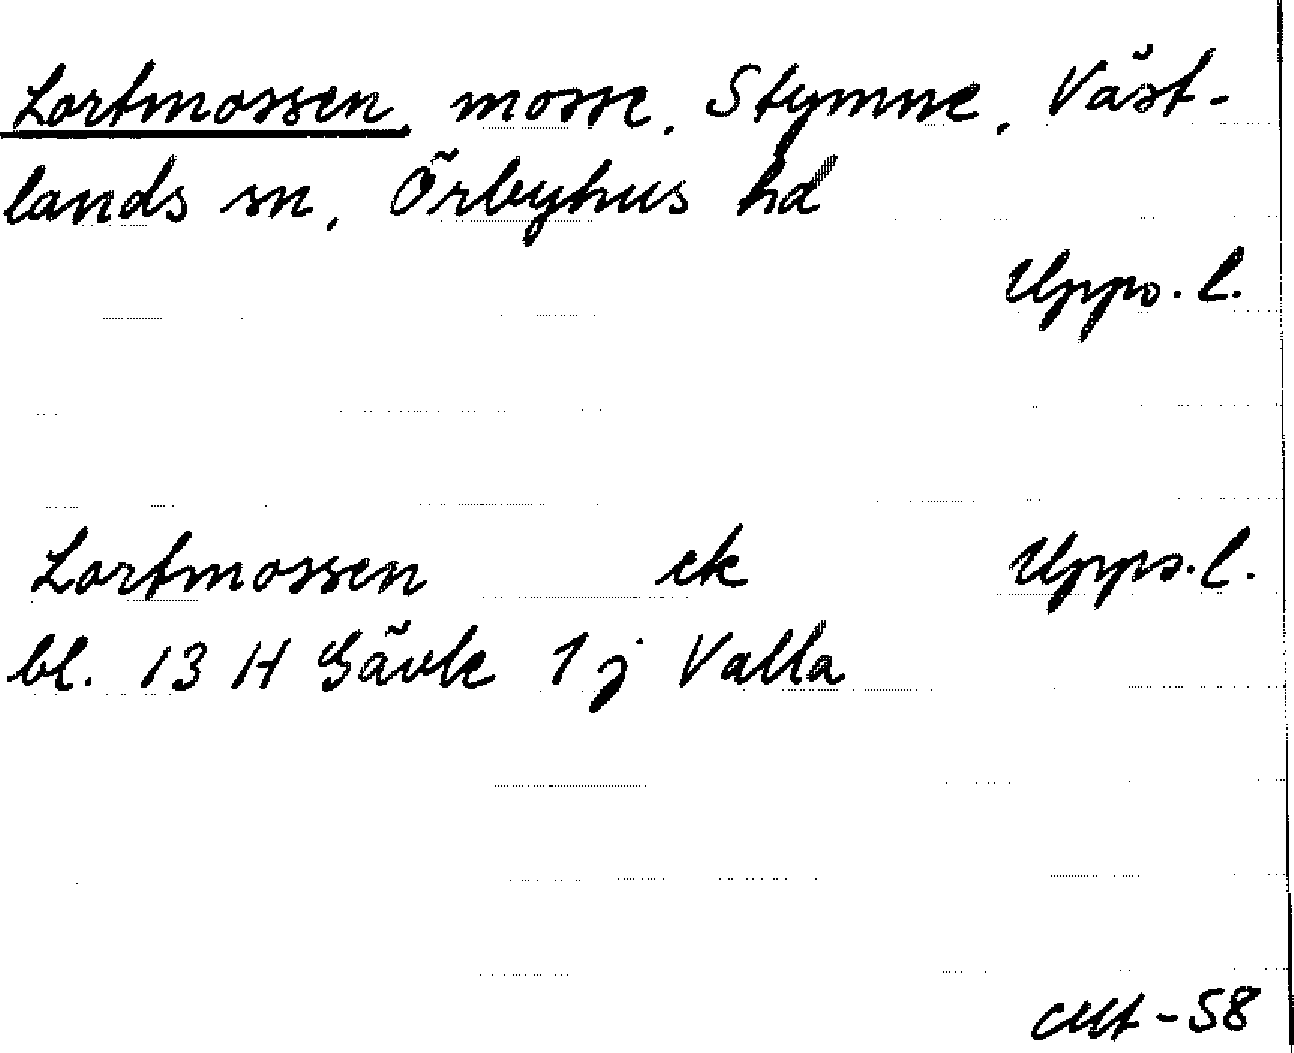 Lortmossen, mosse, Stymne, Väst-
lands sn, Örbyhus hd
Upps. l.
Lortmossen ek Upps. l.
bl. 13 H Gävle 1 j Valla
-58